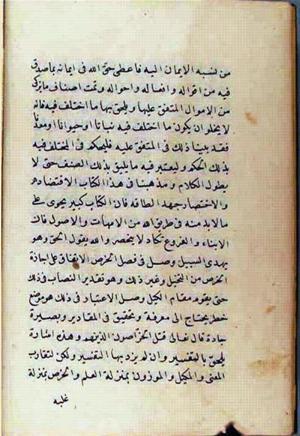 من نسبه الايمان اليه فاعطى حق الله فى ايمانه بما صدق
فيه من اقواله وافعاله واحواله وثمت اصناف ما يزكى
من الاموال المتفق عليها ويلحق بها ما اختلف فيه فانه
لا يخلو ان يكون ما اختلف فيه نباتا او حيوانا او معدنا
فقد بينا ذلك فى المتفق عليه فليحكم فى المختلف فيه
بذلك الحكم وليعتبر فيه ما يليق بذلك الصنف حتى لا
يطول الكلام ومذهبنا فى هذا الكتاب الاقتصاد
والاختصار جهد الطاقه فان الكتاب كبير يحوى على
ما لا بد منه فى طريق الله من الامهات والاصول فان
الابناء والفروع تكاد لا تنحصر والله يقول الحق وهو
يهدى السبيل وصل فى فصل الخرص الاتفاق على اجازة
الخرص من النخيل وغير ذلك وهو تقدير النصاب فى ذلك
حتى يقوم مقام الكيل وصل الاعتبار فى ذلك هو موضع
خطر يحتاج الى معرفة وتحقيق فى المقادير وبصيرة
حادة قال تعالى قتل الخراصون الذين هم وهذه اشارة
تلحق بالتفسير وان لم يرد بها التفسير ولكن لتقارب
المعنى والمكيل والموزون بمنزلة العلم والخرص بمنزلة
غلبه